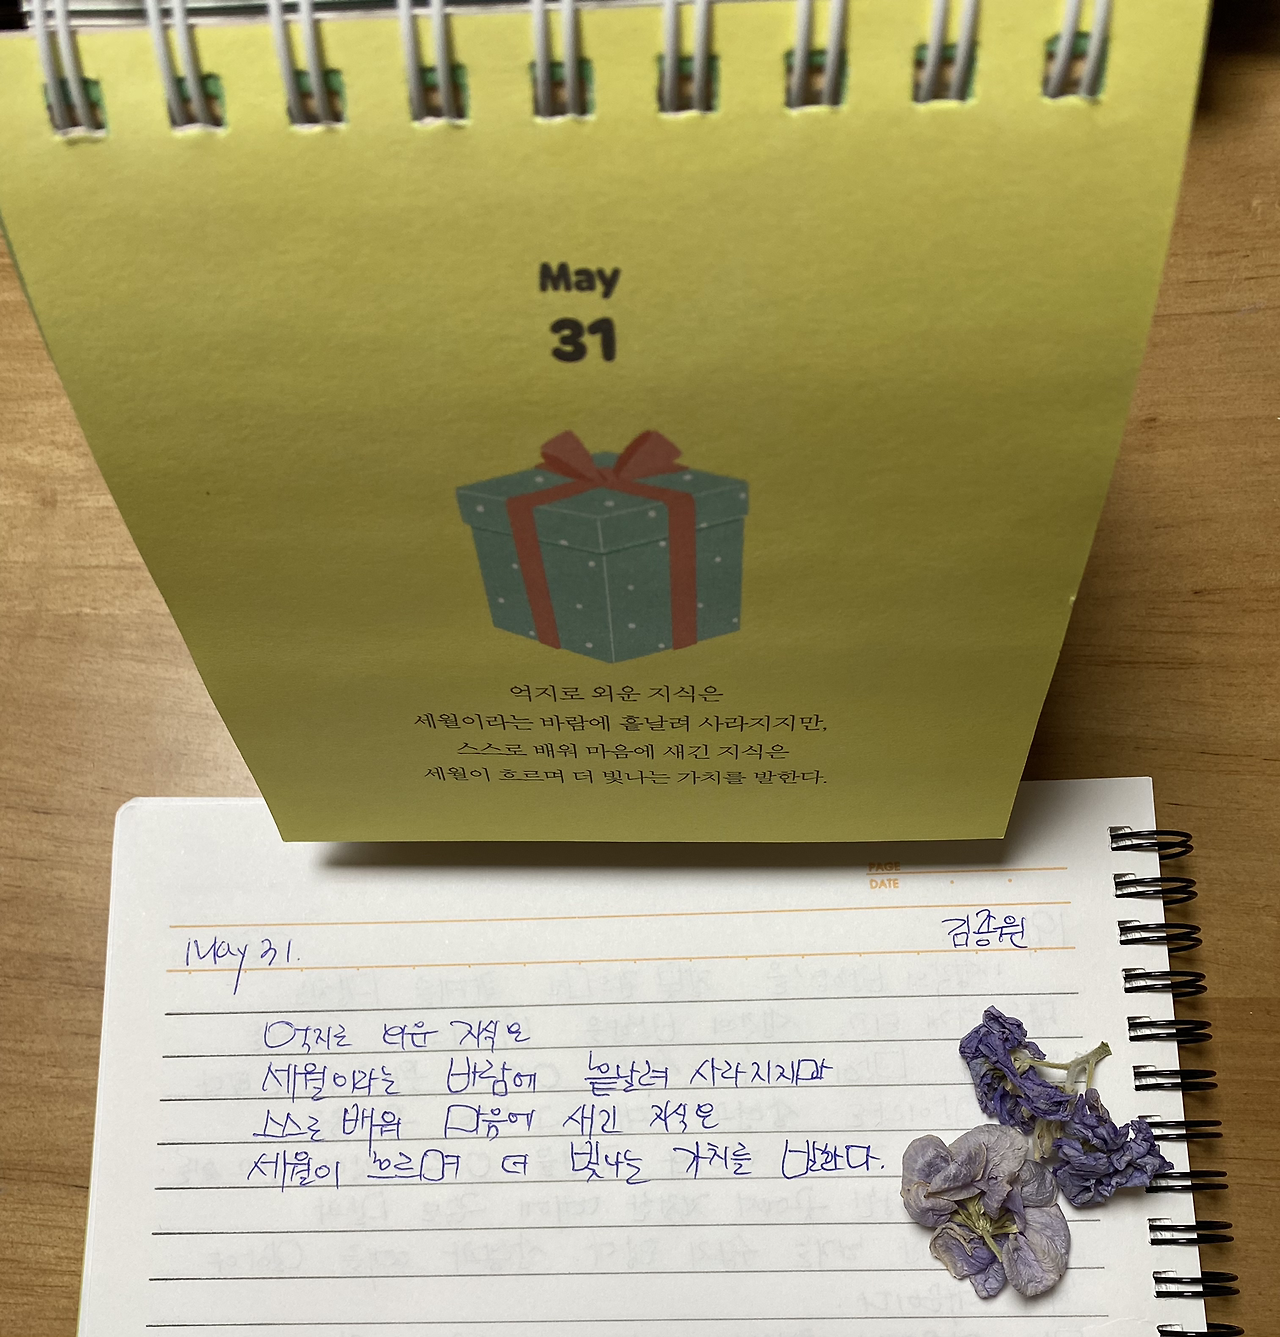 May
31
억지로 외운 지식은
세월이라는 바람에 흩날려 사라지지만,
스스로 배워 마음에 새긴 지식은
세월이 흐르며 더 빛나는 가치를 발한다.
PAGE
DATE
May 31.
김종원
억지로 외운 지식은
세월이라는 바람에 흩날려 사라지지만
스스로 배워 마음에 새긴 지식은
세월이 흐르며 더 빛나는 가치를 발한다.